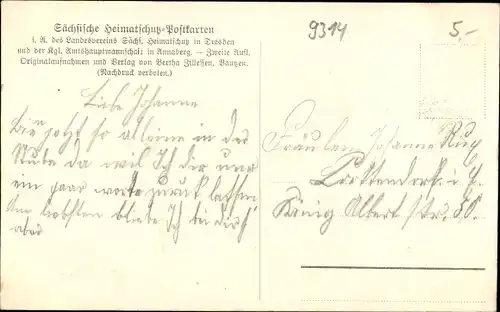 Sächsische Heimatschutz-Postkarten
i. A. des Landesvereins Sächs. Heimatschutz in Dresden
und der Kgl. Amtshauptmannschaft in Annaberg. — Zweite Aufl.
Originalaufnahmen und Verlag von Bertha Zillessen, Bautzen.
(Nachdruck verboten.)
9314
5.-
Liebe Johanne
Bin jetzt so alleine in der
Stube da wil Ich dir und
ein paar worte zurük lassen
Am liebsten bliebe Ich bei dir
aber
Fräulen Johanne
i.
König Albert str. 50.